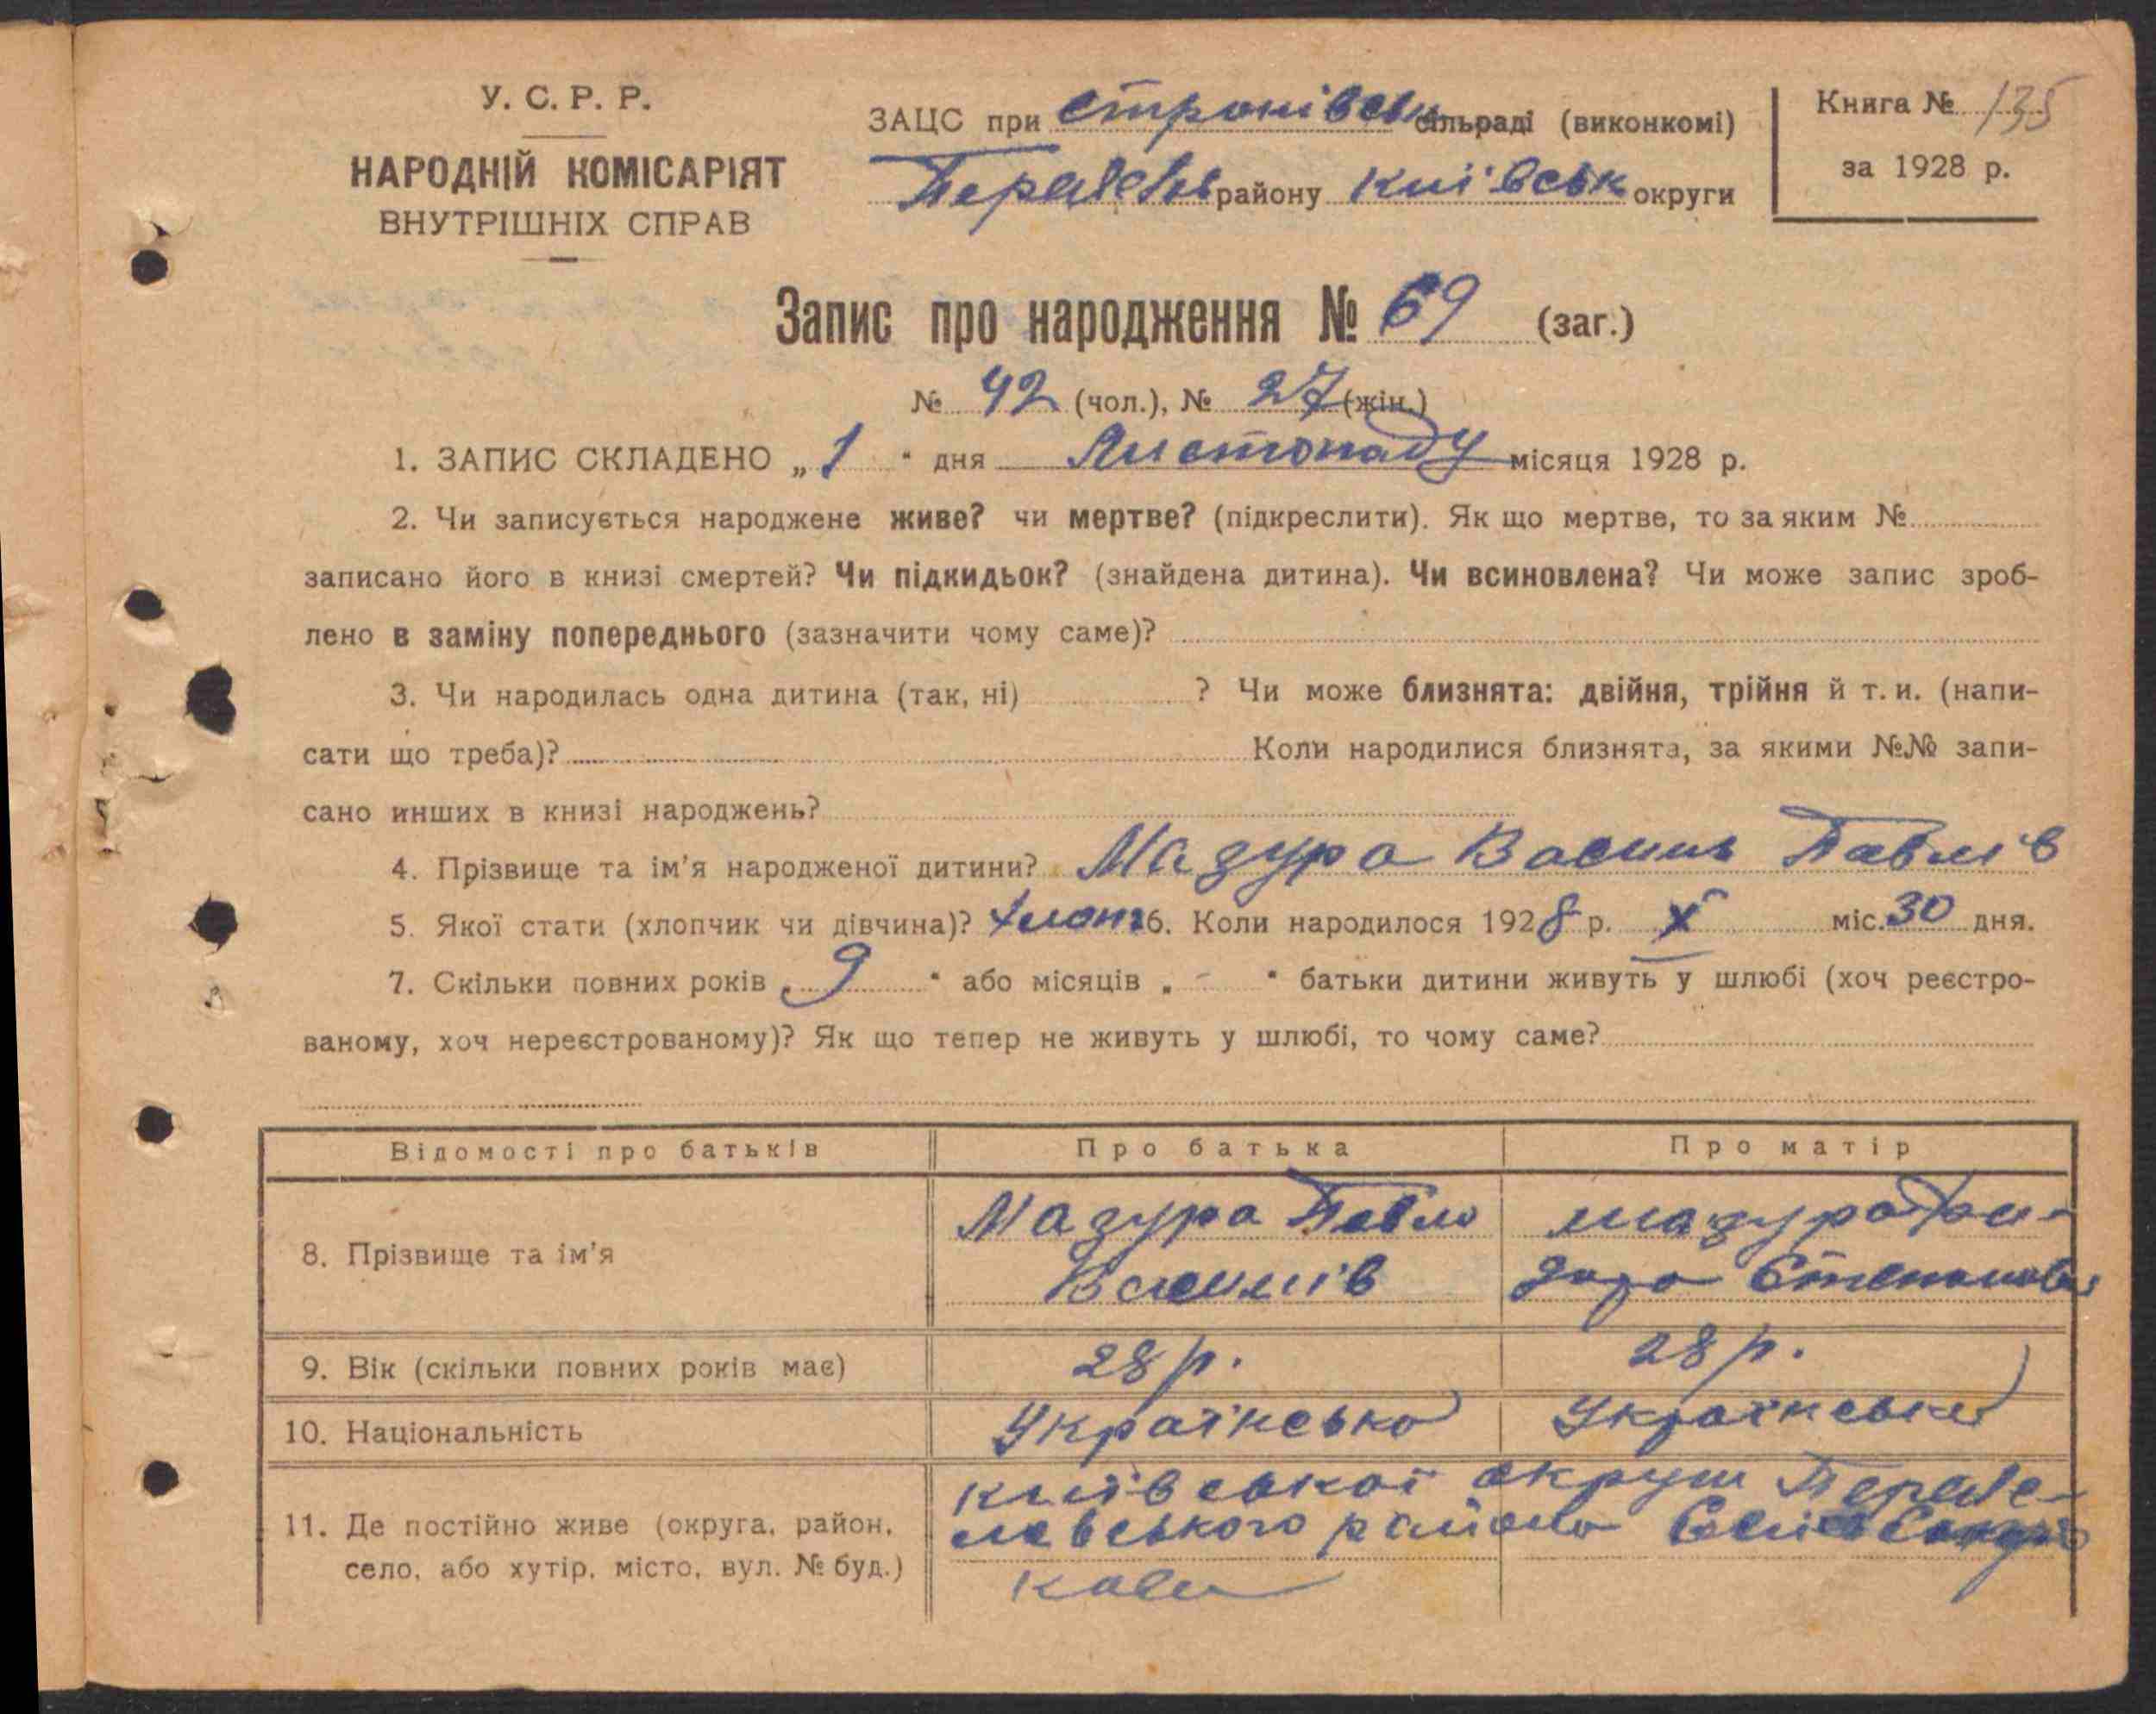 У. С. Р. Р.
НАРОДНІЙ КОМІСАРІЯТ
ВНУТРІШНІХ СПРАВ
ЗАЦС при сільраді (виконкомі)
району Київськ округи
Книга № 135
за 1928 р.
Запис про народження № 69 (заг.)
№ 42 (чол.), № 27 (жін.)
1. ЗАПИС СКЛАДЕНО „ 1 “ дня Листопаду місяця 1928 р.
2. Чи записується народжене живе? чи мертве? (підкреслити). Як що мертве, то за яким №
записано його в книзі смертей? Чи підкидьок? (знайдена дитина). Чи всиновлена? Чи може запис зроб-
лено в заміну попереднього (зазначити чому саме)?
3. Чи народилась одна дитина (так, ні) ? Чи може близнята: двійня, трійня й т. и. (напи-
сати що треба)? Коли народилися близнята, за якими №№ запи-
сано инших в книзі народжень?
4. Прізвище та ім'я народженої дитини? Мазура Василь Павлів
5. Якої стати (хлопчик чи дівчина)? 6. Коли народилося 1928 р. X міс. 30 дня.
7. Скільки повних років „ 9 “ або місяців „ - “ батьки дитини живуть у шлюбі (хоч реєстро-
ваному, хоч нереєстрованому)? Як що тепер не живуть у шлюбі, то чому саме?
Відомості про батьків Про батька Про матір
8. Прізвище та ім'я Мазура Павло Мазура
Василів Степанов
9. Вік (скільки повних років має) 28 р. 28 р.
10. Національність Українська Українська
11. Де постійно живе (округа, район, село, або хутір, місто, вул. № буд.) Київської округи Переяс-
лавського району